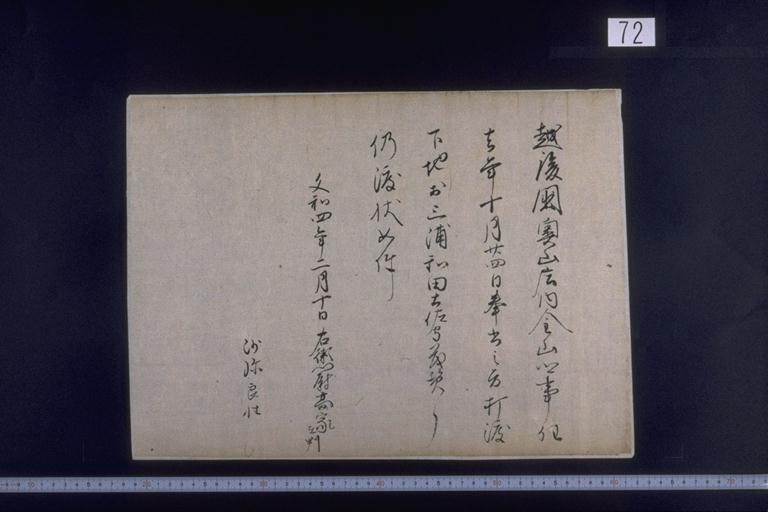 72
越後国奥山庄内金山郷事任
去年十月廿四日奉書之旨打渡
下地於三浦和田土佐守茂資
仍渡状如件
文和四年二月十日 右衛門尉高家 判
沙弥良性